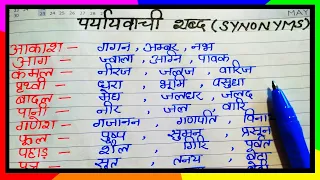 पर्यायवाची शब्द (SYNONYMS)
MAY
आकाश — गगन, अम्बर, नभ
आग — ज्वाला, अग्नि, पावक
कमल — नीरज, जलज, वारिज
पृथ्वी — धरा, भूमि, वसुधा
बादल — मेघ, जलधर, जलद
पानी — नीर, जल, वारि
गणेश — गजानन, गणपति,
फूल — पुष्प, सुमन, प्रसून
पहाड़ — शैल, गिरि, पर्वत
पुत्र — सुत, तनय, बेटा